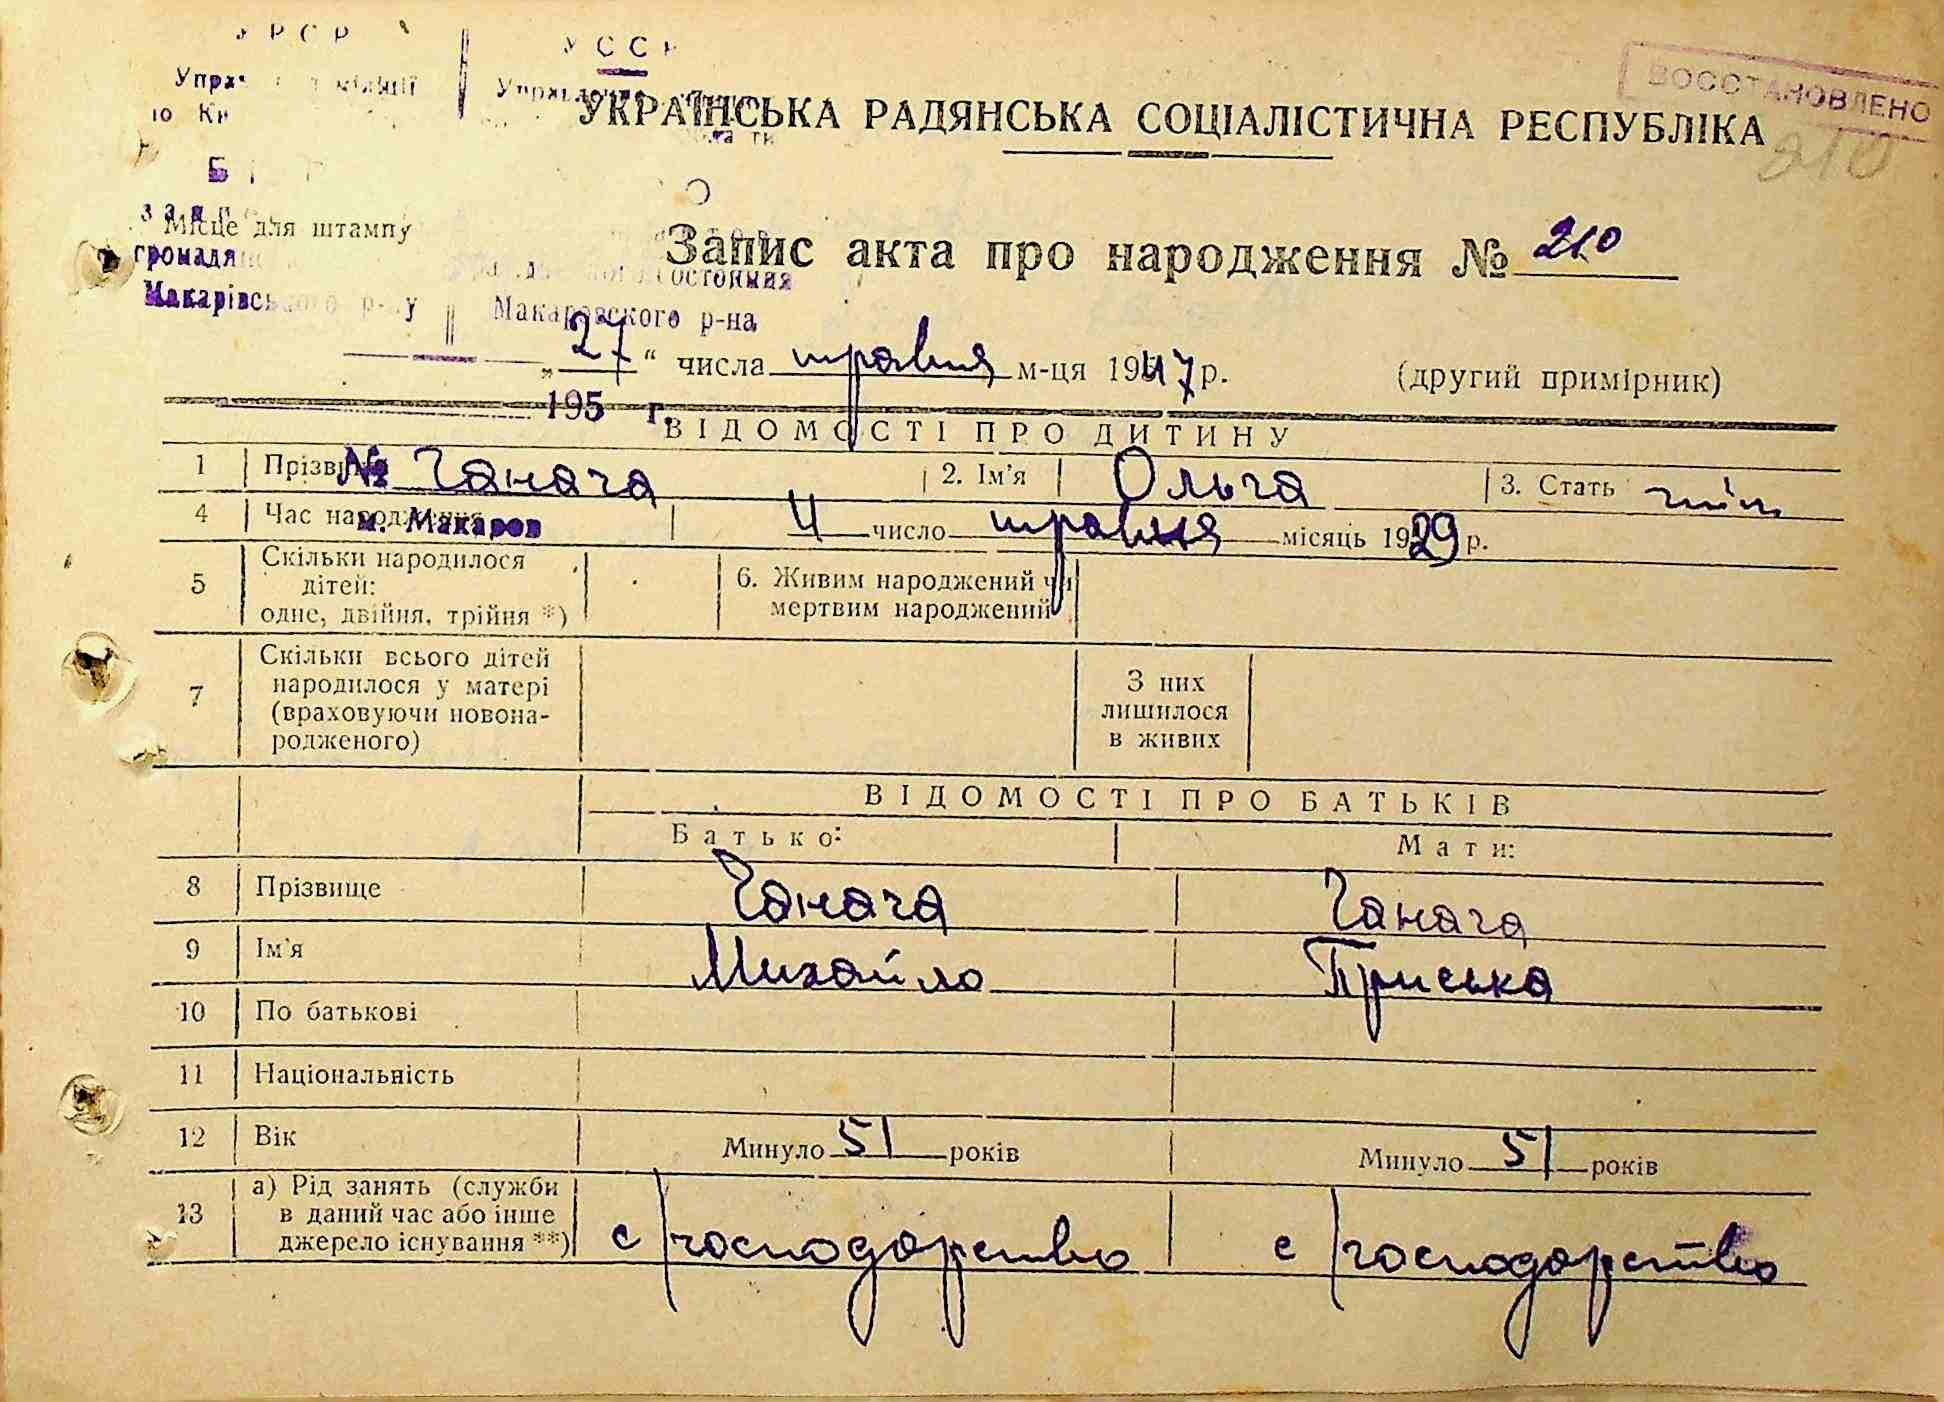 УРСР УССР
Управ міліції Управление
по Ки
ВОССТАНОВЛЕНО
УКРАЇНСЬКА РАДЯНСЬКА СОЦІАЛІСТИЧНА РЕСПУБЛІКА
210
Місце для штампу
Запис акта про народження № 210
громадя состояния
Макарівського р-ну Макаровского р-на
„27“ числа травня м-ця 1947 р. (другий примірник)
195 г.
ВІДОМОСТІ ПРО ДИТИНУ
1 Прізвище № Ганага 2. Ім'я Ольга 3. Стать жін
4 Час народження 4 число травня місяць 1929 р.
м. Макаров
5 Скільки народилося дітей: одне, двійня, трійня *) 6. Живим народжений чи мертвим народжений
7 Скільки всього дітей народилося у матері (враховуючи новонародженого) З них лишилося в живих
ВІДОМОСТІ ПРО БАТЬКІВ
Батько: Мати:
8 Прізвище Ганага Ганага
9 Ім'я Михайло Приська
10 По батькові
11 Національність
12 Вік Минуло 51 років Минуло 51 років
13 а) Рід занять (служби в даний час або інше джерело існування **) с/господарство с/господарство